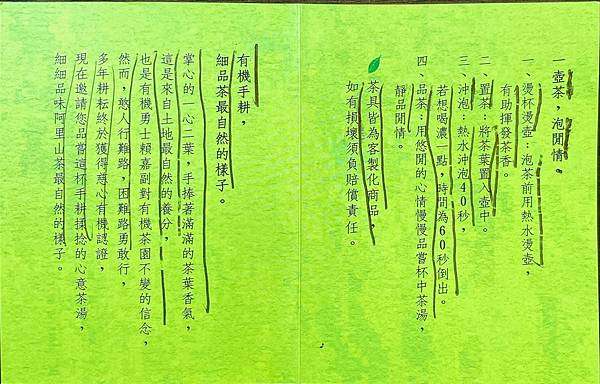 一壺茶，泡閒情。
一、燙杯燙壺：泡茶前用熱水燙壺，
有助揮發茶香。
二、置茶：將茶葉置入壺中。
三、沖泡：熱水沖泡40秒，
若想喝濃一點，時間為60秒倒出。
四、品茶：用悠閒的心情慢慢品嘗杯中茶湯，
靜品閒情。
茶具皆為客製化商品，
如有損壞須負賠償責任。
有機手耕，
細品茶最自然的樣子。
掌心的一心二葉，手捧著滿滿的茶葉香氣，
這是來自土地最自然的養分，
也是有機勇士賴嘉副對有機茶園不變的信念，
然而，憨人行難路，困難路勇敢行，
多年耕耘終於獲得慈心有機認證，
現在邀請您品嘗這杯手耕揉捻的心意茶湯，
細細品味阿里山茶最自然的樣子。